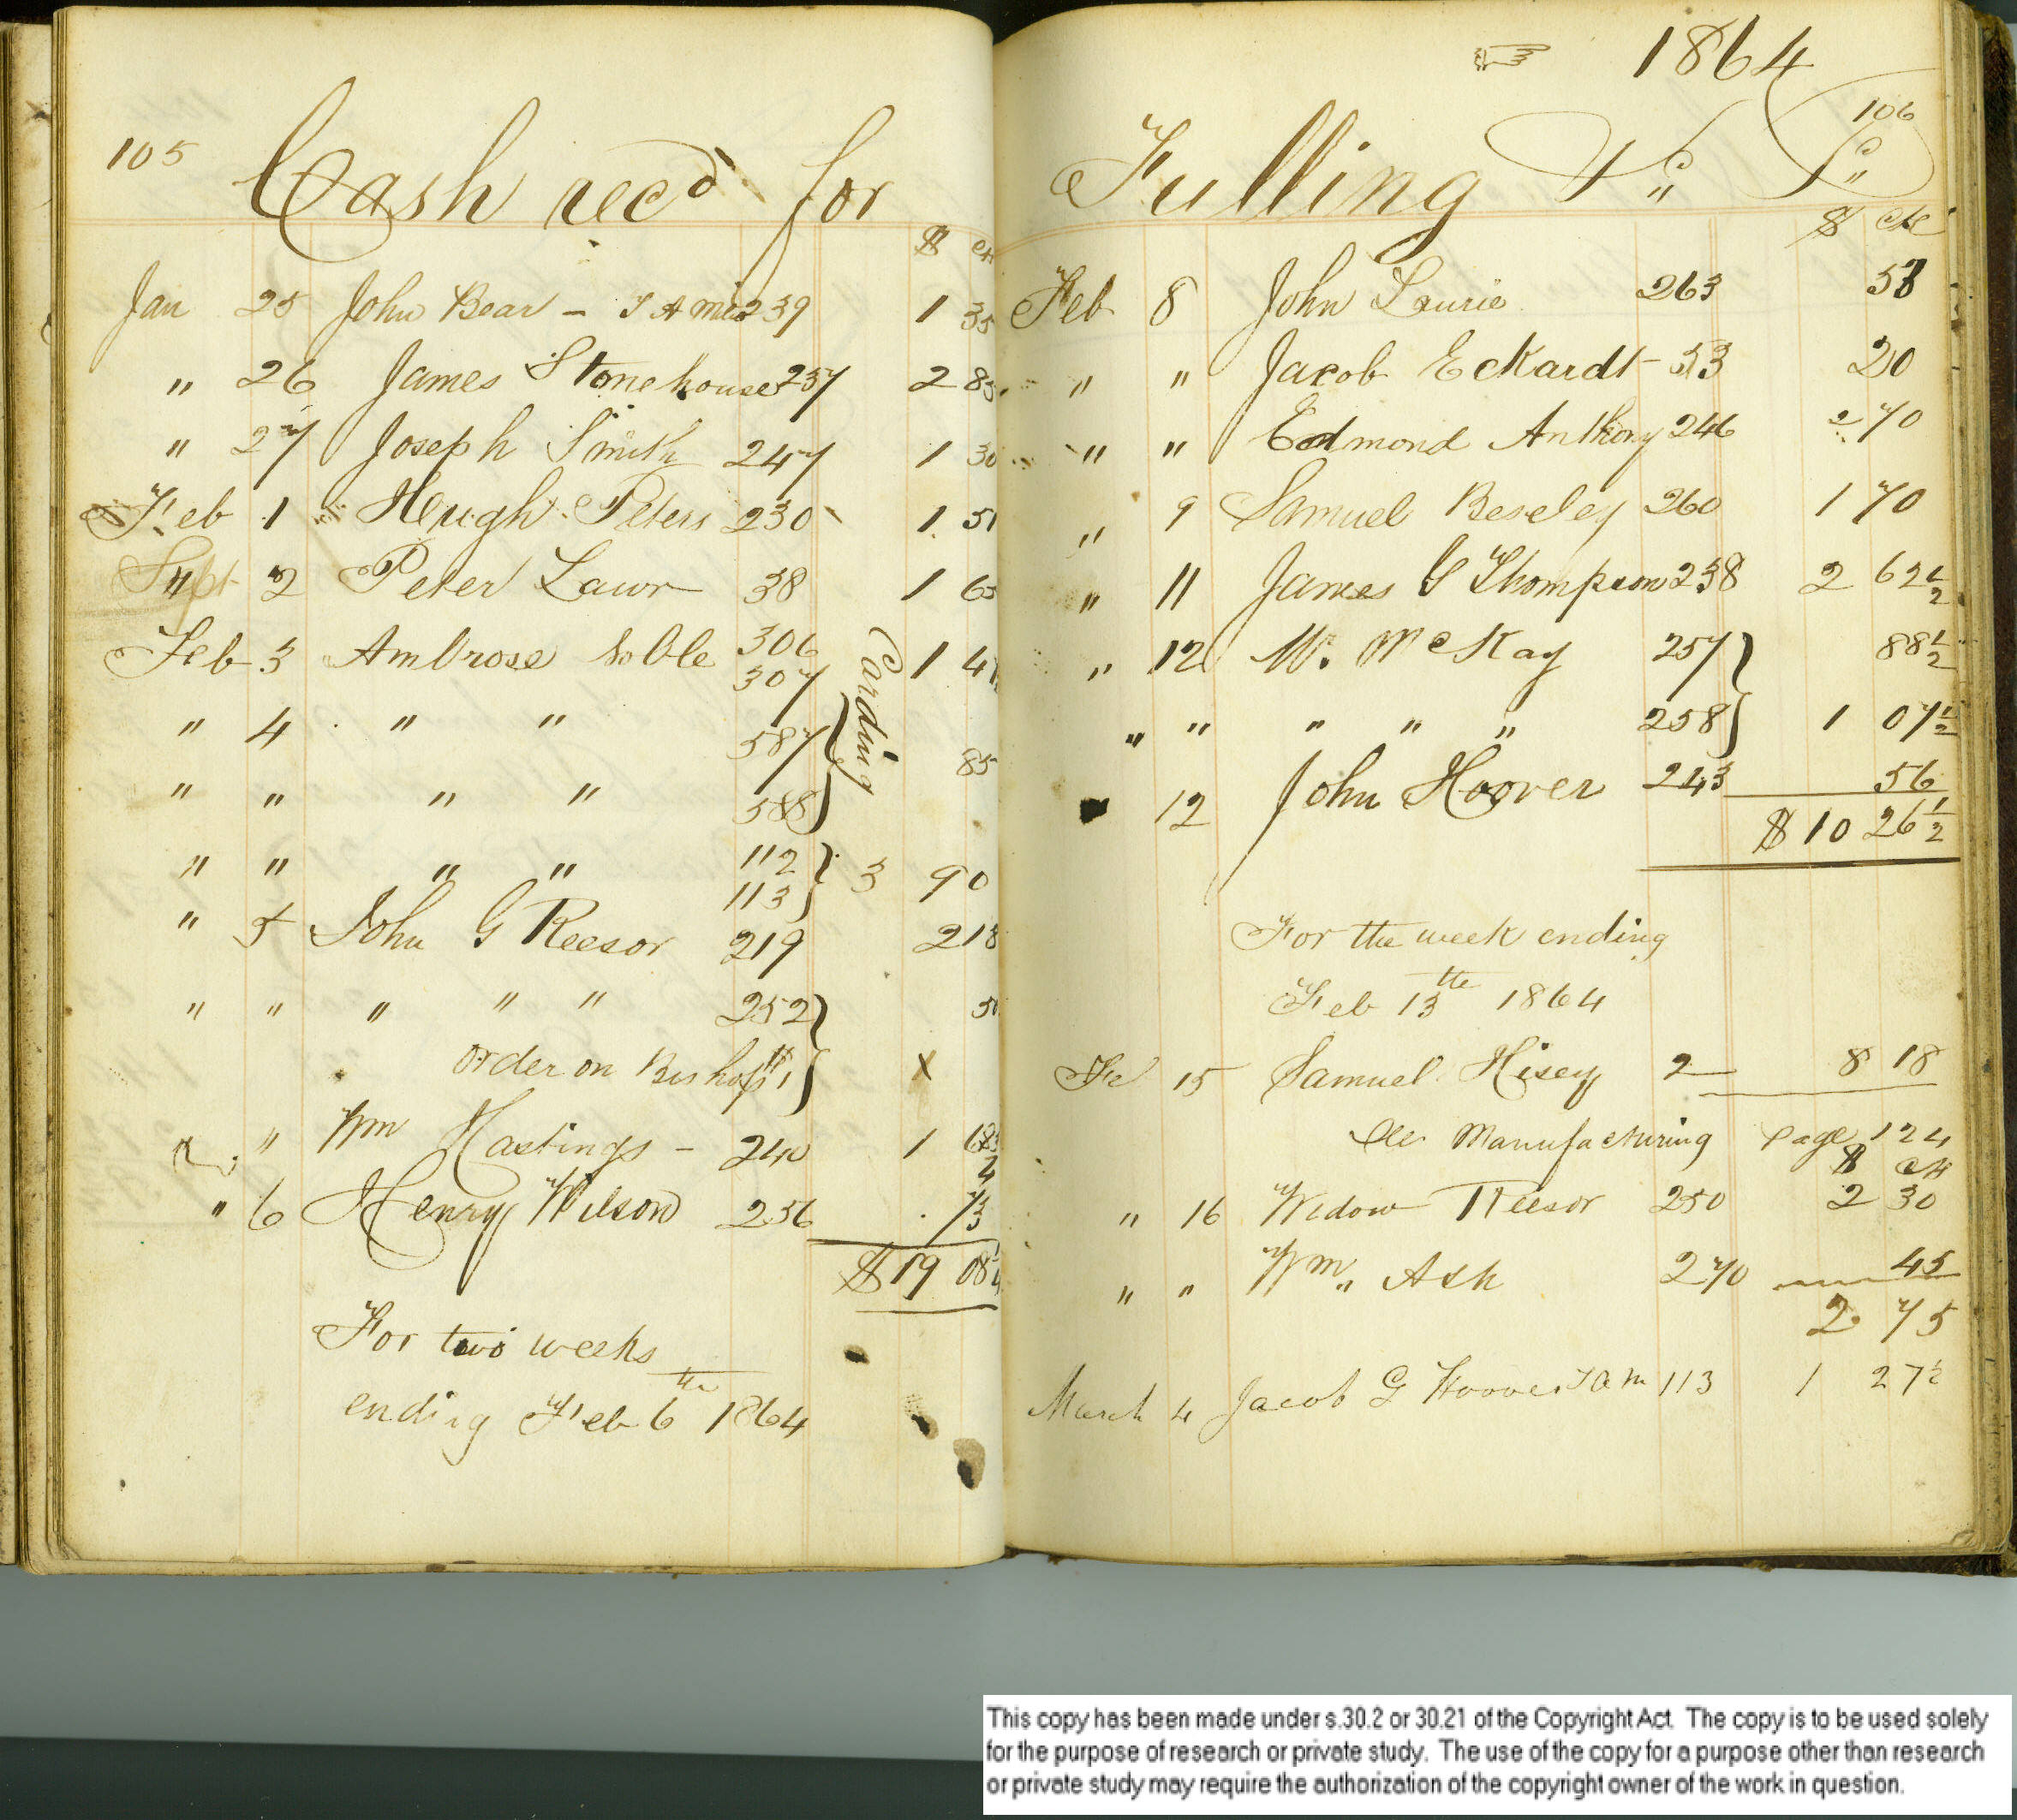 105
Cash recd for
$ cts
Jan 25 John Bear - 239 1 35
" 26 James Stonehouse 257 2 85
" 27 Joseph Smith 247 1 30
Feb 1 Heugh Peters 230 1 51
" 2 Peter Lawr 38 1 65
Feb 3 Ambrose Noble 306 1
307
Carding
" 4 " " 587
85
" " " " 588
" " " " 112 3 90
113
" 5 John G Reesor 219 2 18
" " " " " 252 50
order on Bishop X
" Wm Hastings - 240 1
" 6 Henry Wilson 256
$ 19 08
For two weeks
ending Feb 6th 1864
☞ 1864
106
Fulling &c &c
$ cts
Feb 8 John Laurie 263 53
" " Jacob Eckardt - 53 20
" " Edmond Anthony 246 2 70
" 9 Samuel Beseley 260 1 70
" 11 James G Thompson 238 2 62 1/2
" 12 W. McKay 257 88 1/2
" " " " " 258 1 07 1/2
12 John Hoover 243 56
$ 10 26 1/2
For the week ending
Feb 13th 1864
Fe 15 Samuel Hisey 2 — 8 18
Manufacturing page 124
$ cts
" 16 Widow Reesor 250 2 30
" " Wm " Ash 270 45
2 75
March 4 Jacob G Hoover 113 1 27 1/2
This copy has been made under s.30.2 or 30.21 of the Copyright Act. The copy is to be used solely
for the purpose of research or private study. The use of the copy for a purpose other than research
or private study may require the authorization of the copyright owner of the work in question.